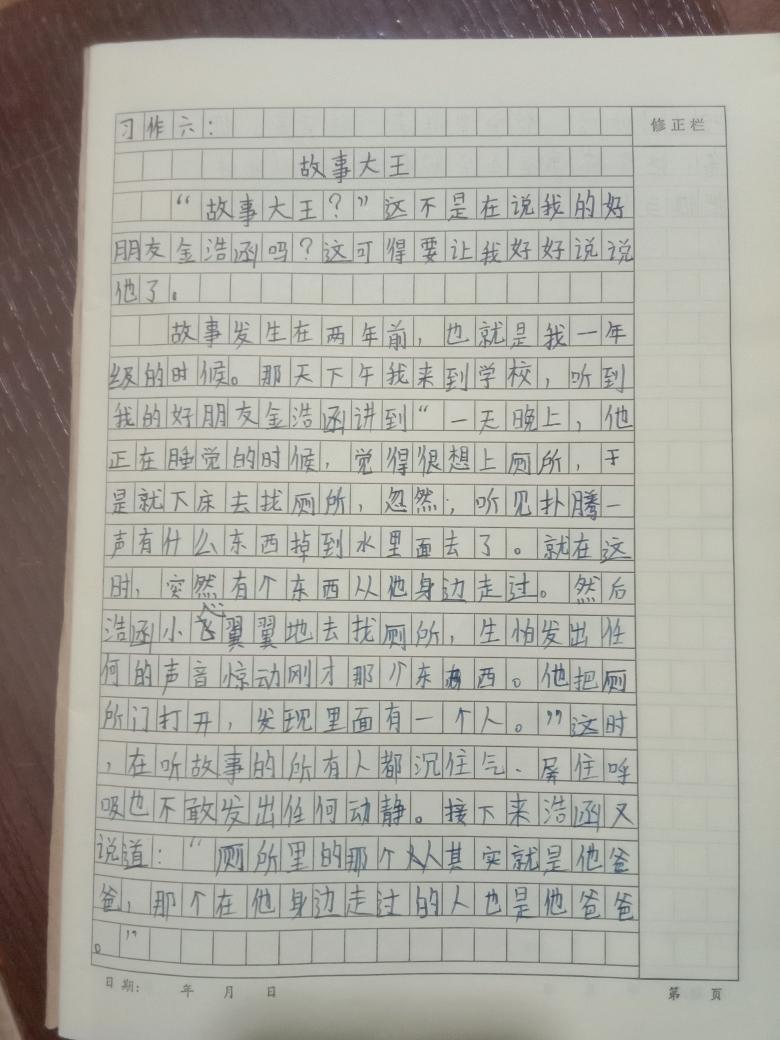 习作六：
修正栏
故事大王
“故事大王？”这不是在说我的好
朋友金浩函吗？这可得要让我好好说说
他了。
故事发生在两年前，也就是我一年
级的时候。那天下午我来到学校，听到
我的好朋友金浩函讲到“一天晚上，他
正在睡觉的时候，觉得很想上厕所，于
是就下床去找厕所，忽然，听见扑腾一
声有什么东西掉到水里面去了。就在这
时，突然有个东西从他身边走过。然后
浩函小心翼翼地去找厕所，生怕发出任
何的声音惊动刚才那个东西。他把厕
所门打开，发现里面有一个人。”这时
，在听故事的所有人都沉住气、屏住呼
吸也不敢发出任何动静。接下来浩函又
说道：“厕所里的那个人其实就是他爸
爸，那个在他身边走过的人也是他爸爸
。”
日期： 年 月 日
第 页